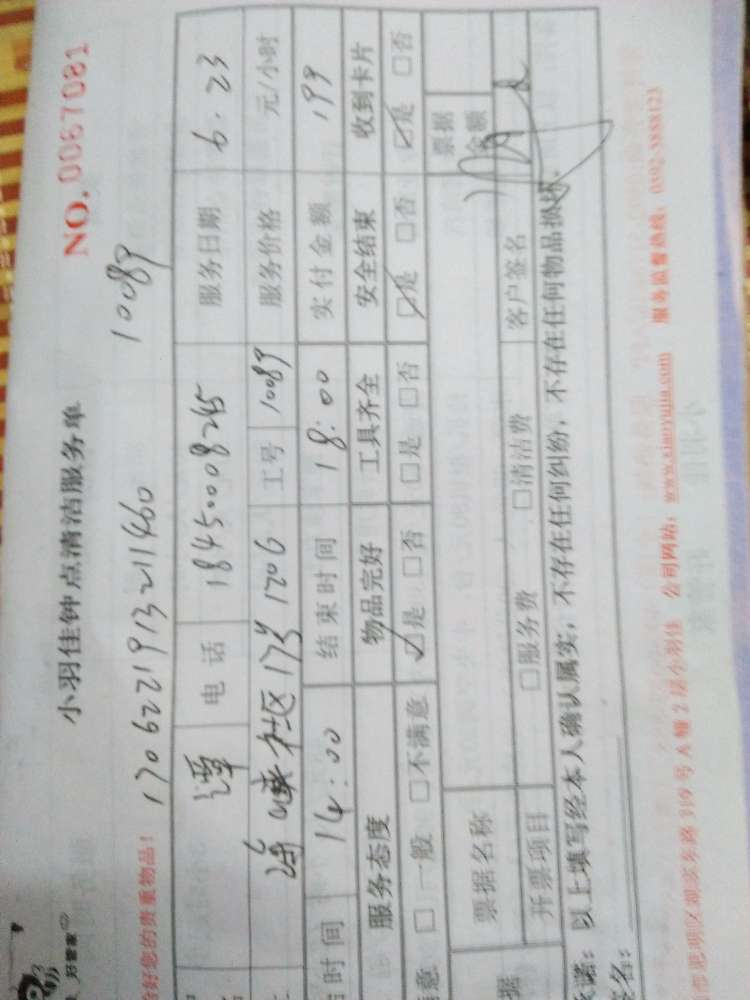 好管家
小羽佳钟点清洁服务单
NO.0067081
好您的贵重物品！ 1706221913211460 10089
谭 电话 18450008245 服务日期 6.23
海峡社区17号1206 工号 10089 服务价格 元/小时
时间 14:00 结束时间 18:00 实付金额 199
服务态度 物品完好 工具齐全 安全结束 收到卡片
意 □一般 □不满意 ☑是 □否 □是 □否 ☑是 □否 ☑是 □否
票据名称 票据金额
据 开票项目 □服务费 □清洁费 客户签名
诺：以上填写经本人确认属实，不存在任何纠纷，不存在任何物品损坏。
名：
思明区湖滨东路319号A幢2层小羽佳 公司网站：www.xiaoyujia.com 服务监督热线：0592-3888123